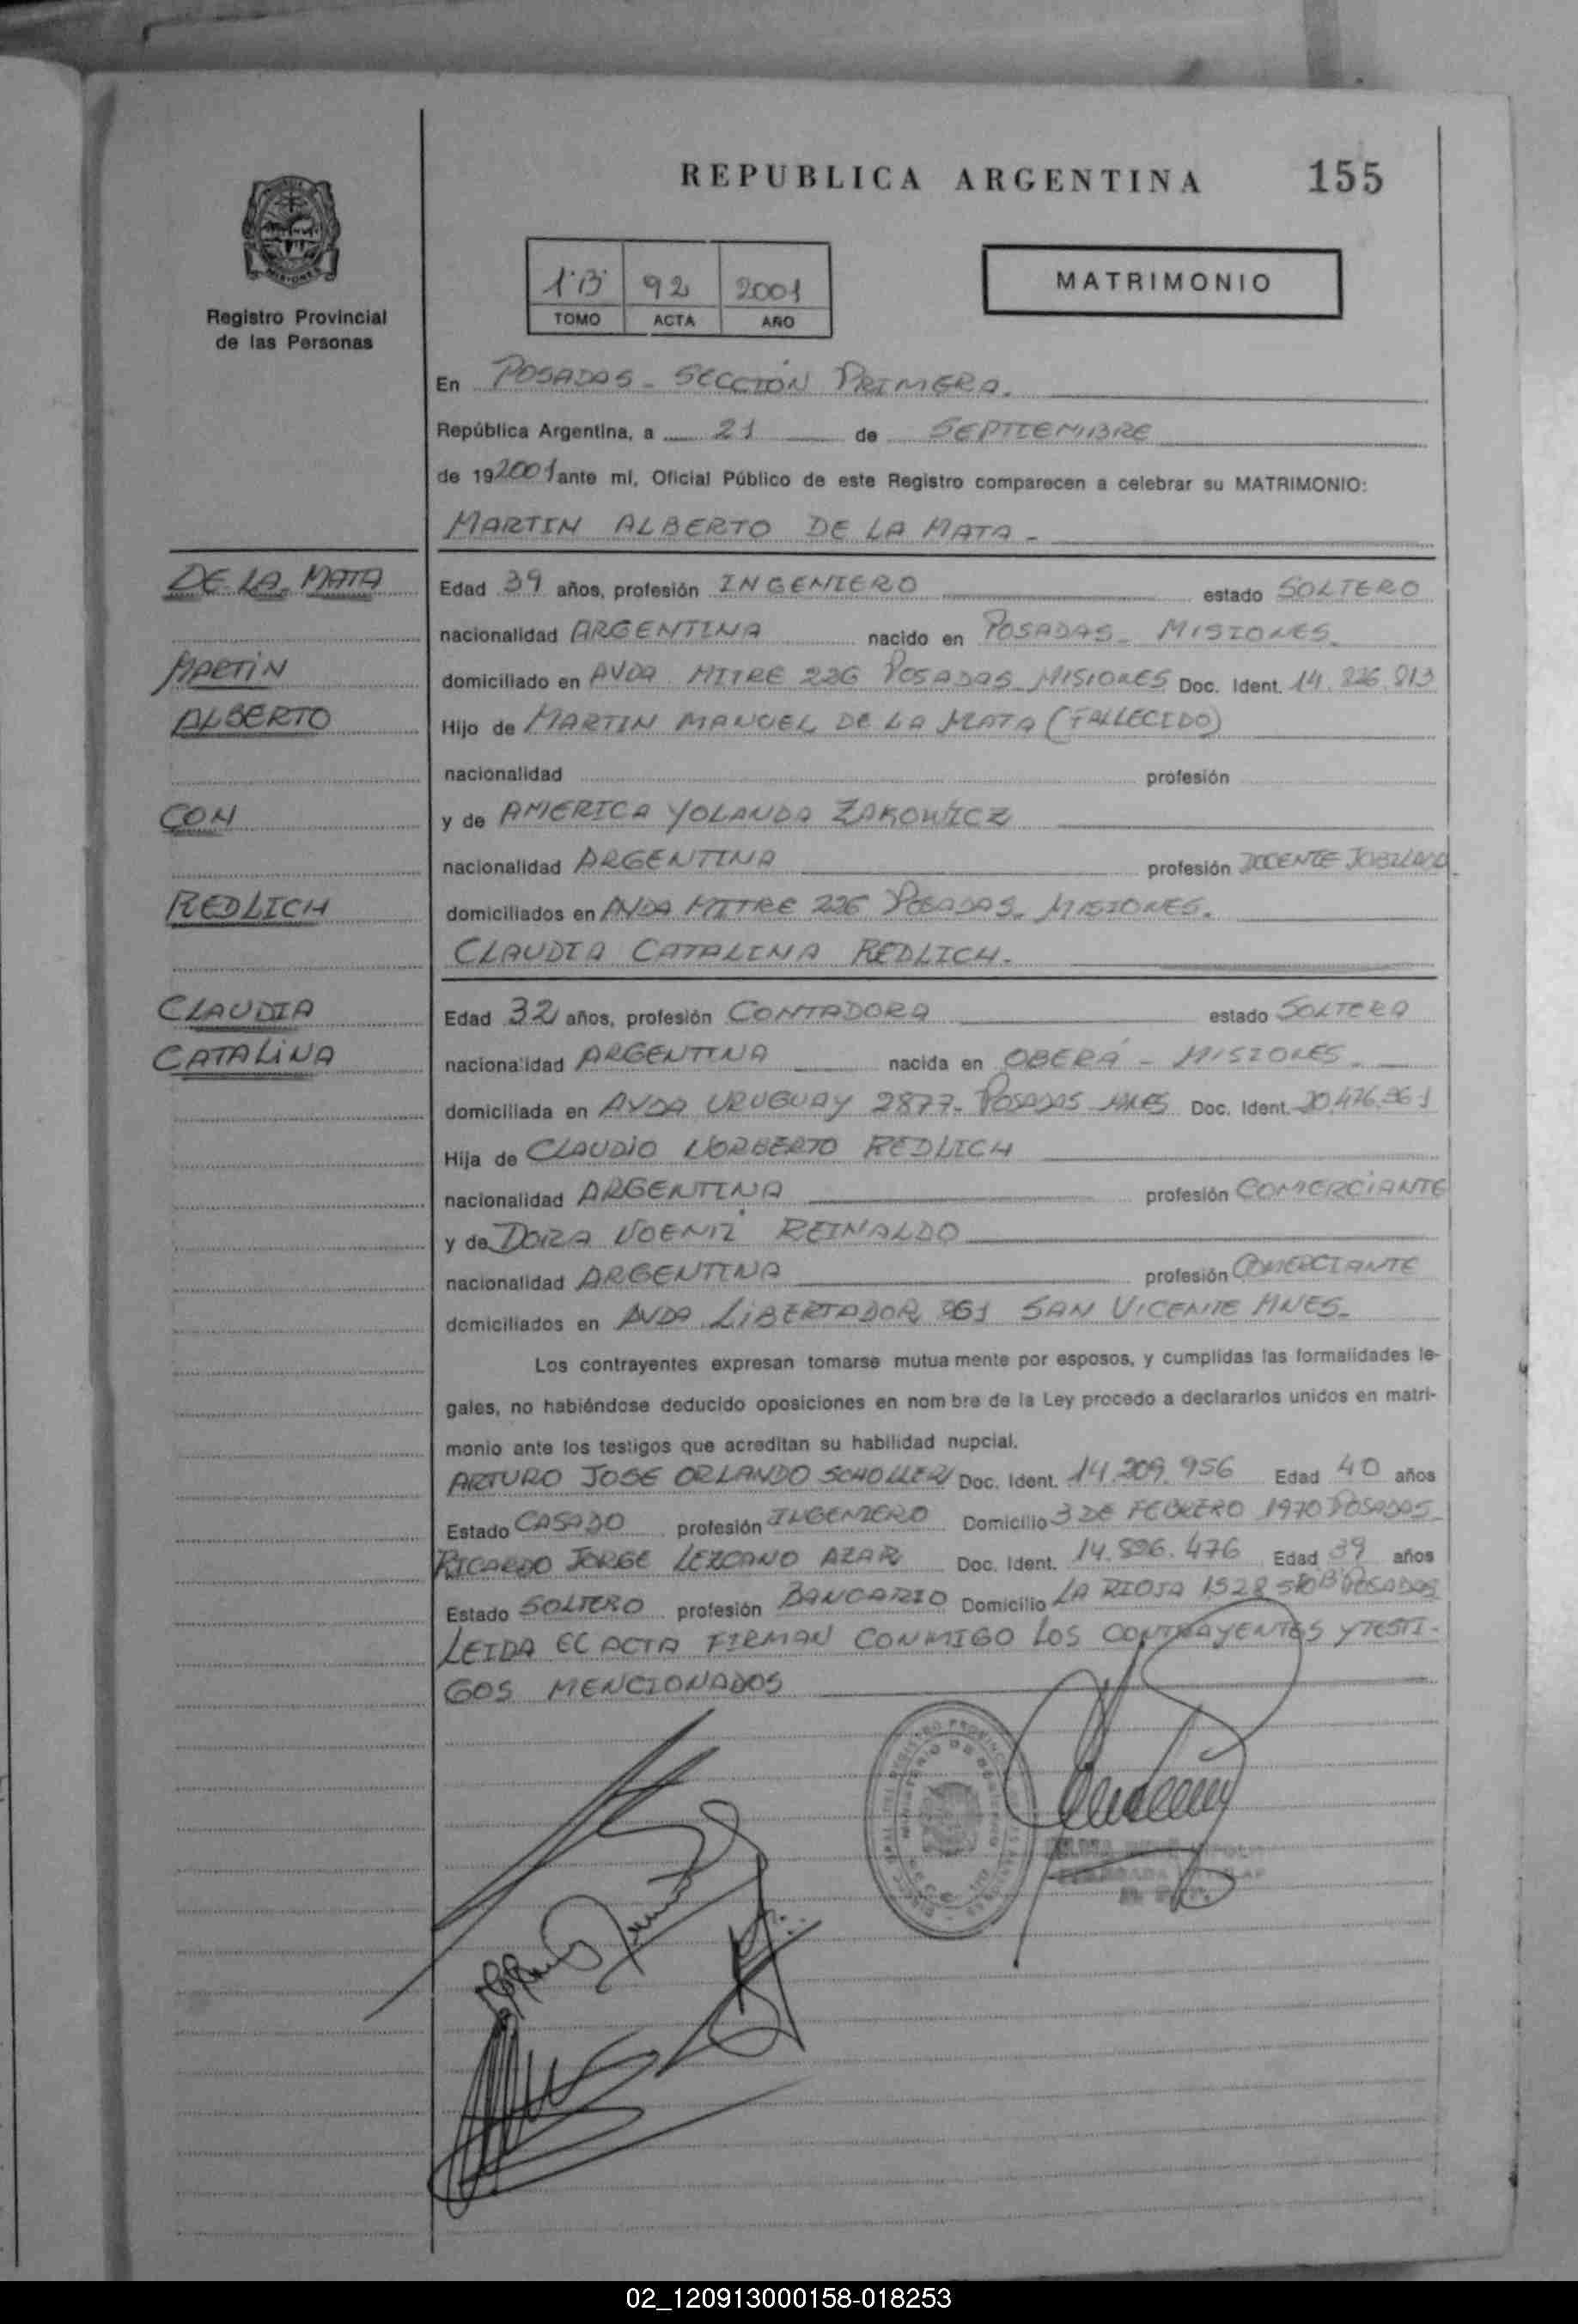 REPUBLICA ARGENTINA 155
MISIONES
Registro Provincial
de las Personas
1°B° 92 2001
TOMO ACTA AÑO
MATRIMONIO
En POSADAS - SECCIÓN PRIMERA.
República Argentina, a 21 de SEPTIEMBRE
de 192001 ante mí, Oficial Público de este Registro comparecen a celebrar su MATRIMONIO:
MARTIN ALBERTO DE LA MATA -
DE LA MATA
MARTIN
ALBERTO
CON
REDLICH
CLAUDIA
CATALINA
Edad 39 años, profesión INGENIERO estado SOLTERO
nacionalidad ARGENTINA nacido en POSADAS - MISIONES
domiciliado en AVDA MITRE 226 POSADAS MISIONES Doc. Ident. 14.826.813
Hijo de MARTIN MANUEL DE LA MATA (FALLECIDO)
nacionalidad profesión
y de AMERICA YOLANDA ZAKOWICZ
nacionalidad ARGENTINA profesión DOCENTE JUBILADA
domiciliados en AVDA MITRE 226 POSADAS - MISIONES.
CLAUDIA CATALINA REDLICH.
Edad 32 años, profesión CONTADORA estado SOLTERA
nacionalidad ARGENTINA nacida en OBERÁ - MISIONES
domiciliada en AVDA URUGUAY 2877 - POSADAS MNES Doc. Ident. 20.476.361
Hija de CLAUDIO NORBERTO REDLICH
nacionalidad ARGENTINA profesión COMERCIANTE
y de DORA NOEMI REINALDO
nacionalidad ARGENTINA profesión COMERCIANTE
domiciliados en AVDA LIBERTADOR 961 SAN VICENTE MNES.
Los contrayentes expresan tomarse mutua mente por esposos, y cumplidas las formalidades le-
gales, no habiéndose deducido oposiciones en nom bre de la Ley procedo a declararlos unidos en matri-
monio ante los testigos que acreditan su habilidad nupcial.
ARTURO JOSE ORLANDO SCHOLLER Doc. Ident. 14.209.956 Edad 40 años
Estado CASADO profesión INGENIERO Domicilio 3 DE FEBRERO 1970 POSADAS
RICARDO JORGE LEZCANO AZAR Doc. Ident. 14.826.476 Edad 39 años
Estado SOLTERO profesión BANCARIO Domicilio LA RIOJA 1528 5°B° POSADAS
LEIDA EL ACTA FIRMAN CONMIGO LOS CONTRAYENTES Y TESTI-
GOS MENCIONADOS
02_120913000158-018253